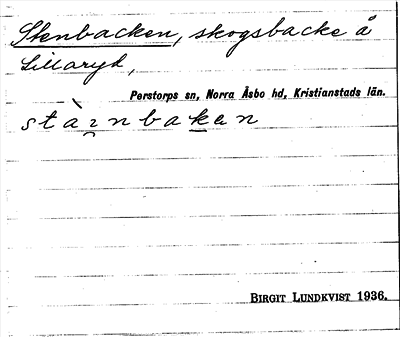 Stenbacken, skogsbacke å
Lillaryd,
Perstorps sn, Norra Åsbo hd, Kristianstads län.
BIRGIT LUNDKVIST 1936.